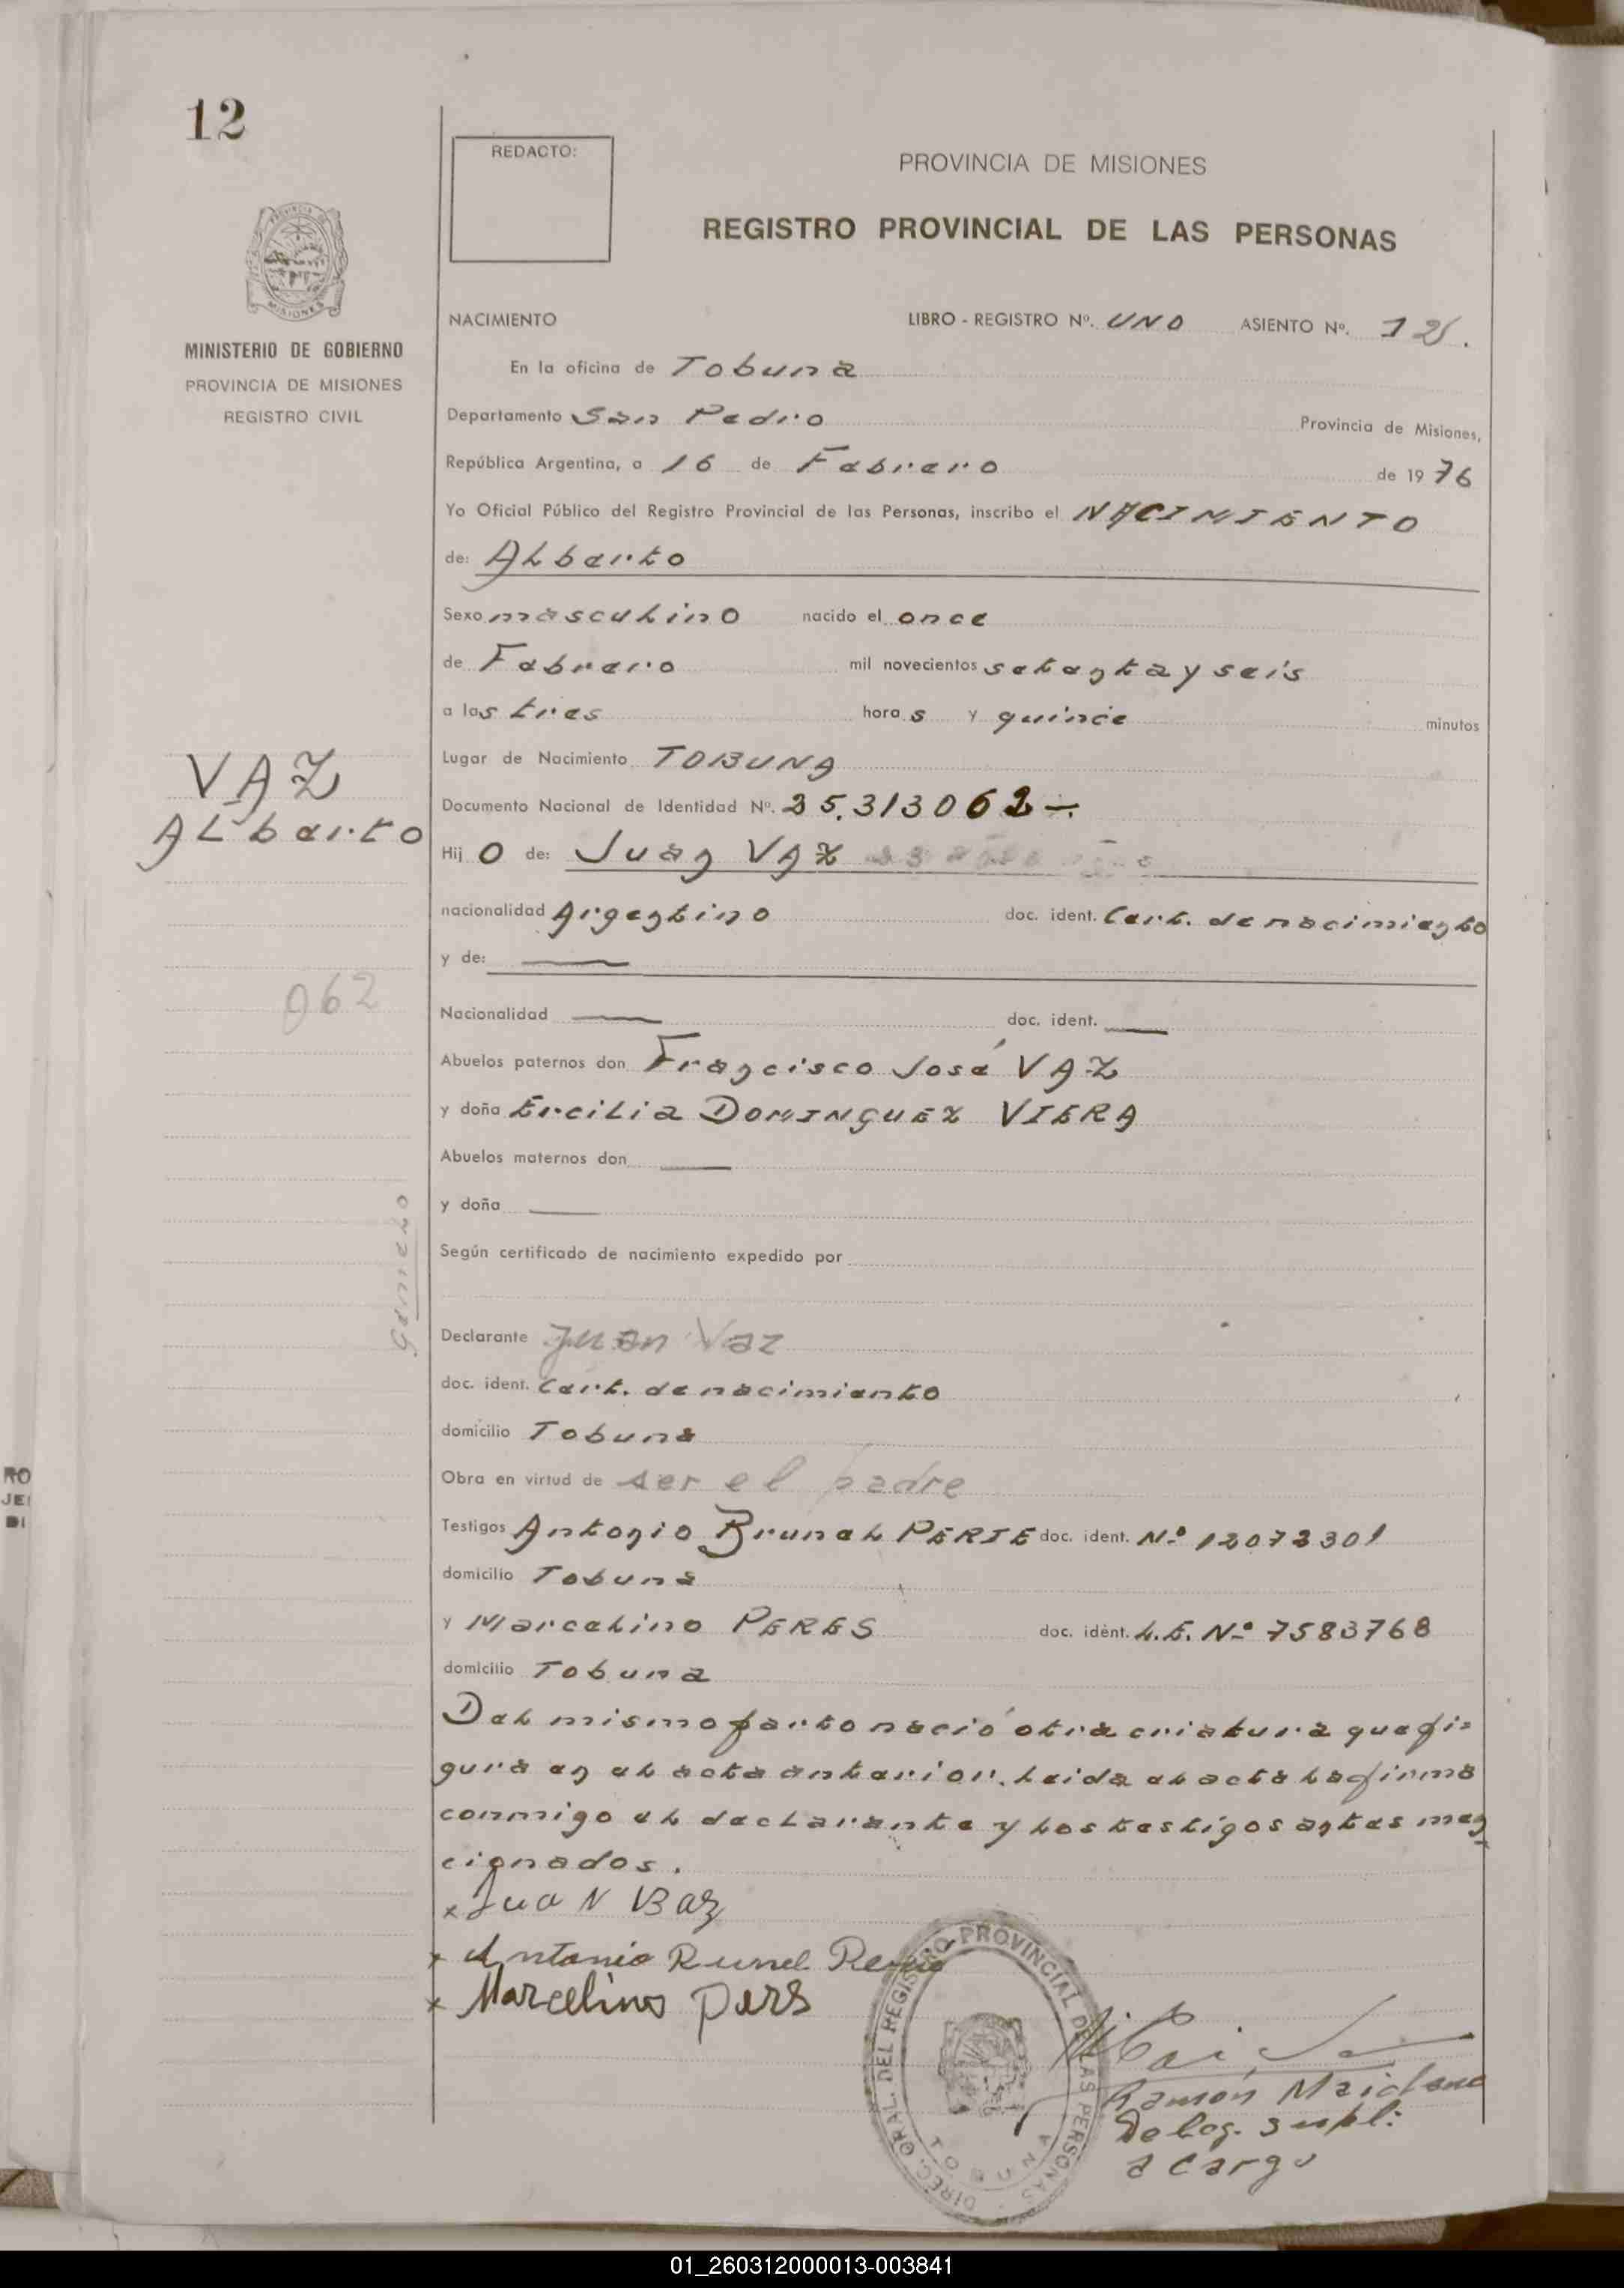 12
REDACTO:
PROVINCIA DE MISIONES
REGISTRO PROVINCIAL DE LAS PERSONAS
MINISTERIO DE GOBIERNO
PROVINCIA DE MISIONES
REGISTRO CIVIL
NACIMIENTO LIBRO - REGISTRO Nº. UNO ASIENTO Nº. 12.
En la oficina de Tobuna
Departamento San Pedro Provincia de Misiones,
República Argentina, a 16 de Febrero de 1976
Yo Oficial Público del Registro Provincial de las Personas, inscribo el NACIMIENTO
de: ALberto
Sexo masculino nacido el once
de Febrero mil novecientos setenta y seis
a las tres horas y quince minutos
Lugar de Nacimiento TOBUNA
VAZ
ALberto
Documento Nacional de Identidad Nº. 25.313062-.
Hijo de: Juan VAZ
nacionalidad Argentino doc. ident. Cert. de nacimiento
y de: —
062
Nacionalidad — doc. ident. —
Abuelos paternos don Francisco José VAZ
y doña ErciLia DOMINGUEZ VIERA
Abuelos maternos don —
y doña —
gemelo
Según certificado de nacimiento expedido por
Declarante Juan Vaz
doc. ident. Cert. de nacimiento
domicilio Tobuna
Obra en virtud de ser el padre
Testigos Antonio Brunel PERIE doc. ident. Nº 12072301
domicilio Tobuna
y Marcelino PERES doc. ident. L.E. Nº 7583768
domicilio Tobuna
Del mismo parto nació otra criatura que fi=
gura en el acta anterior. Leida el acta la firma
conmigo el declarante y los testigos antes men
cionados.
x Juan Baz
x Antonio Runel
x Marcelino Pers
DIREC. GRAL. DEL REGISTRO PROVINCIAL DE LAS PERSONAS
TOBUNA
Ramón Maidana
Deleg. supl.
a cargo
RO
JE
DI
01_260312000013-003841